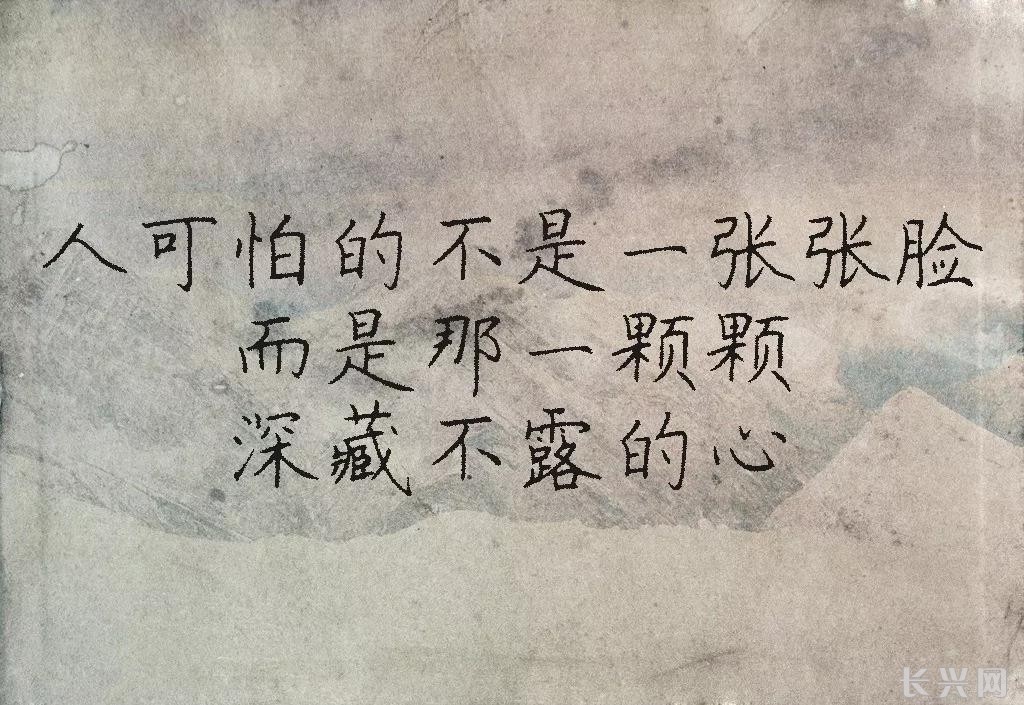 人可怕的不是一张张脸
而是那一颗颗
深藏不露的心
长兴网